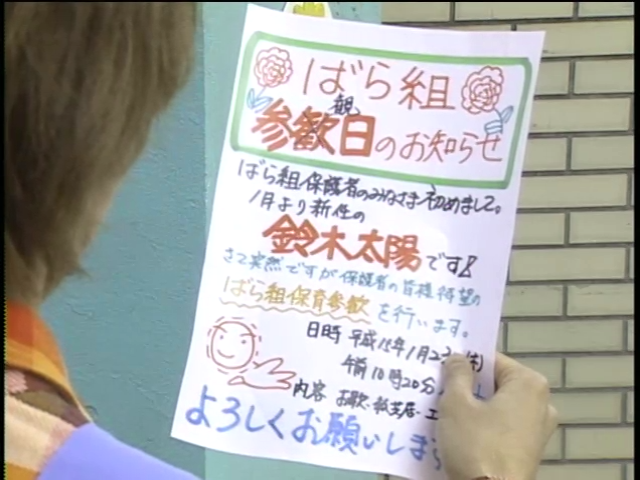 ばら組
観
参歓日のお知らせ
ばら組保護者のみなさま初めまして。
1月より新任の
鈴木太陽です!
さて突然ですが保護者の皆様待望の
ばら組保育参歓
を行います。
日時 平成15年1月23 (木)
午前10時20分
内容 お歌・紙芝居・エ
よろしくお願いしま